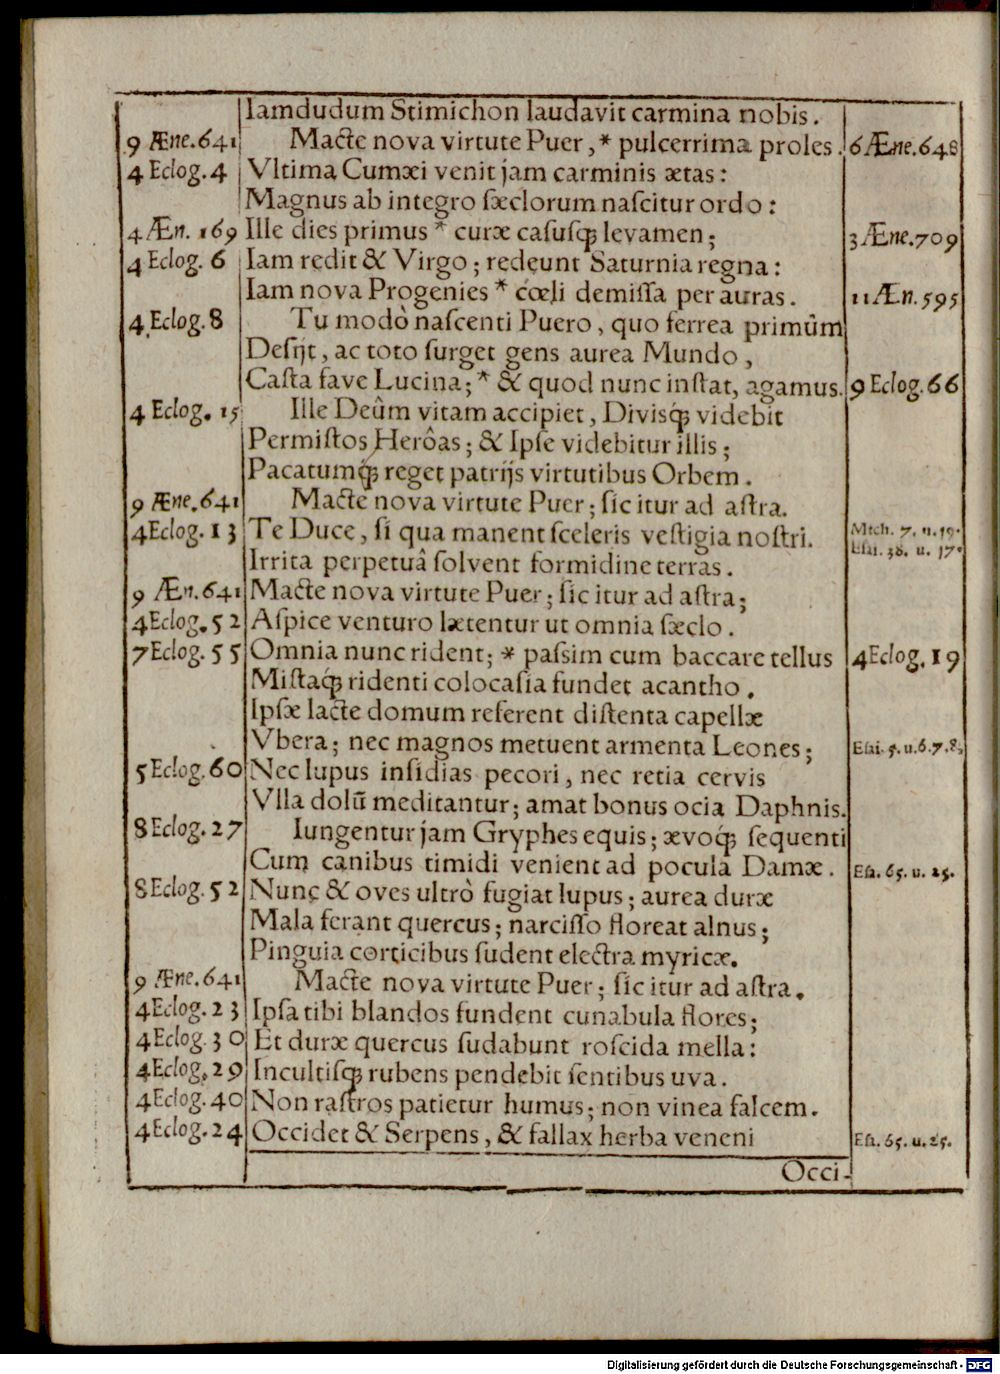 Iamdudum Stimichon laudavit carmina nobis.
9 Æne.641 Macte nova virtute Puer, * pulcerrima proles. 6Æne.648
4 Eclog.4 Vltima Cumæi venit jam carminis ætas:
Magnus ab integro ſæclorum naſcitur ordo:
4 Æn. 169 Ille dies primus * curæ caſuſq́; levamen; 3Æne.709
4 Eclog. 6 Iam redit & Virgo; redeunt Saturnia regna:
Iam nova Progenies * cœli demiſſa per auras. 11Æn.595
4 Eclog.8 Tu modò naſcenti Puero, quo ferrea primûm
Deſijt, ac toto ſurget gens aurea Mundo,
Caſta fave Lucina; * & quod nunc inſtat, agamus. 9 Eclog.66
4 Eclog. 15 Ille Deûm vitam accipiet, Diviſq́; videbit
Permiſtos Herôas; & Ipſe videbitur illis;
Pacatumq́; reget patrijs virtutibus Orbem.
9 Æne.641 Macte nova virtute Puer; ſic itur ad aſtra.
4Eclog.13 Te Duce, ſi qua manent ſceleris veſtigia noſtri. Mich. 7. u.19.
Irrita perpetuâ ſolvent formidine terras. Eſai. 38. u. 17.
9 Æn.641 Macte nova virtute Puer; ſic itur ad aſtra;
4Eclog.52 Aſpice venturo lætentur ut omnia ſæclo.
7Eclog.55 Omnia nunc rident; * paſsim cum baccare tellus 4Eclog.19
Miſtaq́; ridenti colocaſia fundet acantho.
Ipſæ lacte domum referent diſtenta capellæ
Vbera; nec magnos metuent armenta Leones; Eſai. 5. u.6.7.8.
5Eclog.60 Nec lupus inſidias pecori, nec retia cervis
Vlla dolũ meditantur; amat bonus ocia Daphnis.
8Eclog.27 Iungentur jam Gryphes equis; ævoq́; ſequenti
Cum canibus timidi venient ad pocula Damæ. Eſa. 65. u. 25.
8Eclog.52 Nunc & oves ultrò fugiat lupus; aurea duræ
Mala ferant quercus; narciſſo floreat alnus;
Pinguia corticibus ſudent electra myricæ.
9 Æne.641 Macte nova virtute Puer; ſic itur ad aſtra.
4Eclog.23 Ipſa tibi blandos fundent cunabula flores;
4Eclog.30 Et duræ quercus ſudabunt roſcida mella:
4Eclog.29 Incultiſq́; rubens pendebit ſentibus uva.
4Eclog.40 Non raſtros patietur humus; non vinea falcem.
4Eclog.24 Occidet & Serpens, & fallax herba veneni Eſa. 65. u. 25.
Occi-
Digitalisierung gefördert durch die Deutsche Forschungsgemeinschaft - DFG